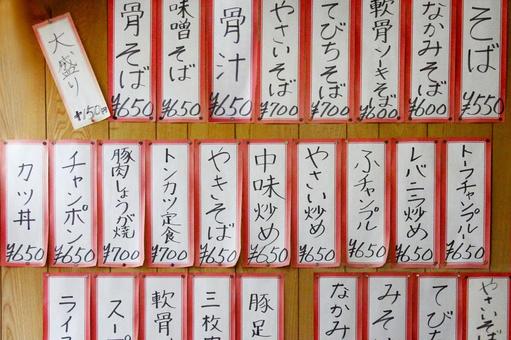 そば ¥550
なかみそば ¥600
軟骨ソーキそば ¥600
てびちそば ¥700
やさいそば ¥700
骨汁 ¥650
味噌そば ¥650
骨そば ¥650
大盛り ¥150円
トーフチャンプル ¥650
レバニラ炒め ¥650
ふチャンプル ¥650
やさい炒め ¥650
中味炒め ¥650
やきそば ¥650
トンカツ定食 ¥700
豚肉しょうが焼 ¥700
チャンポン ¥650
カツ丼 ¥650
やさいそば
てび
みそ
なかみ
豚足
三枚
軟骨
スープ
ライス